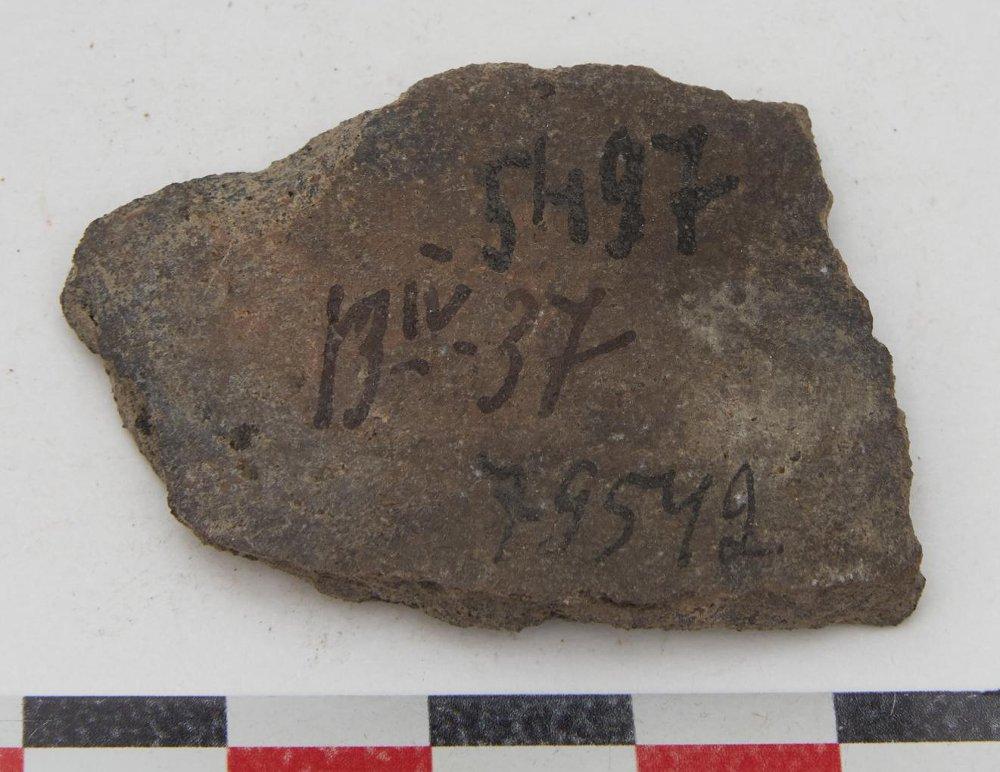 5497
13 IV 37
79542